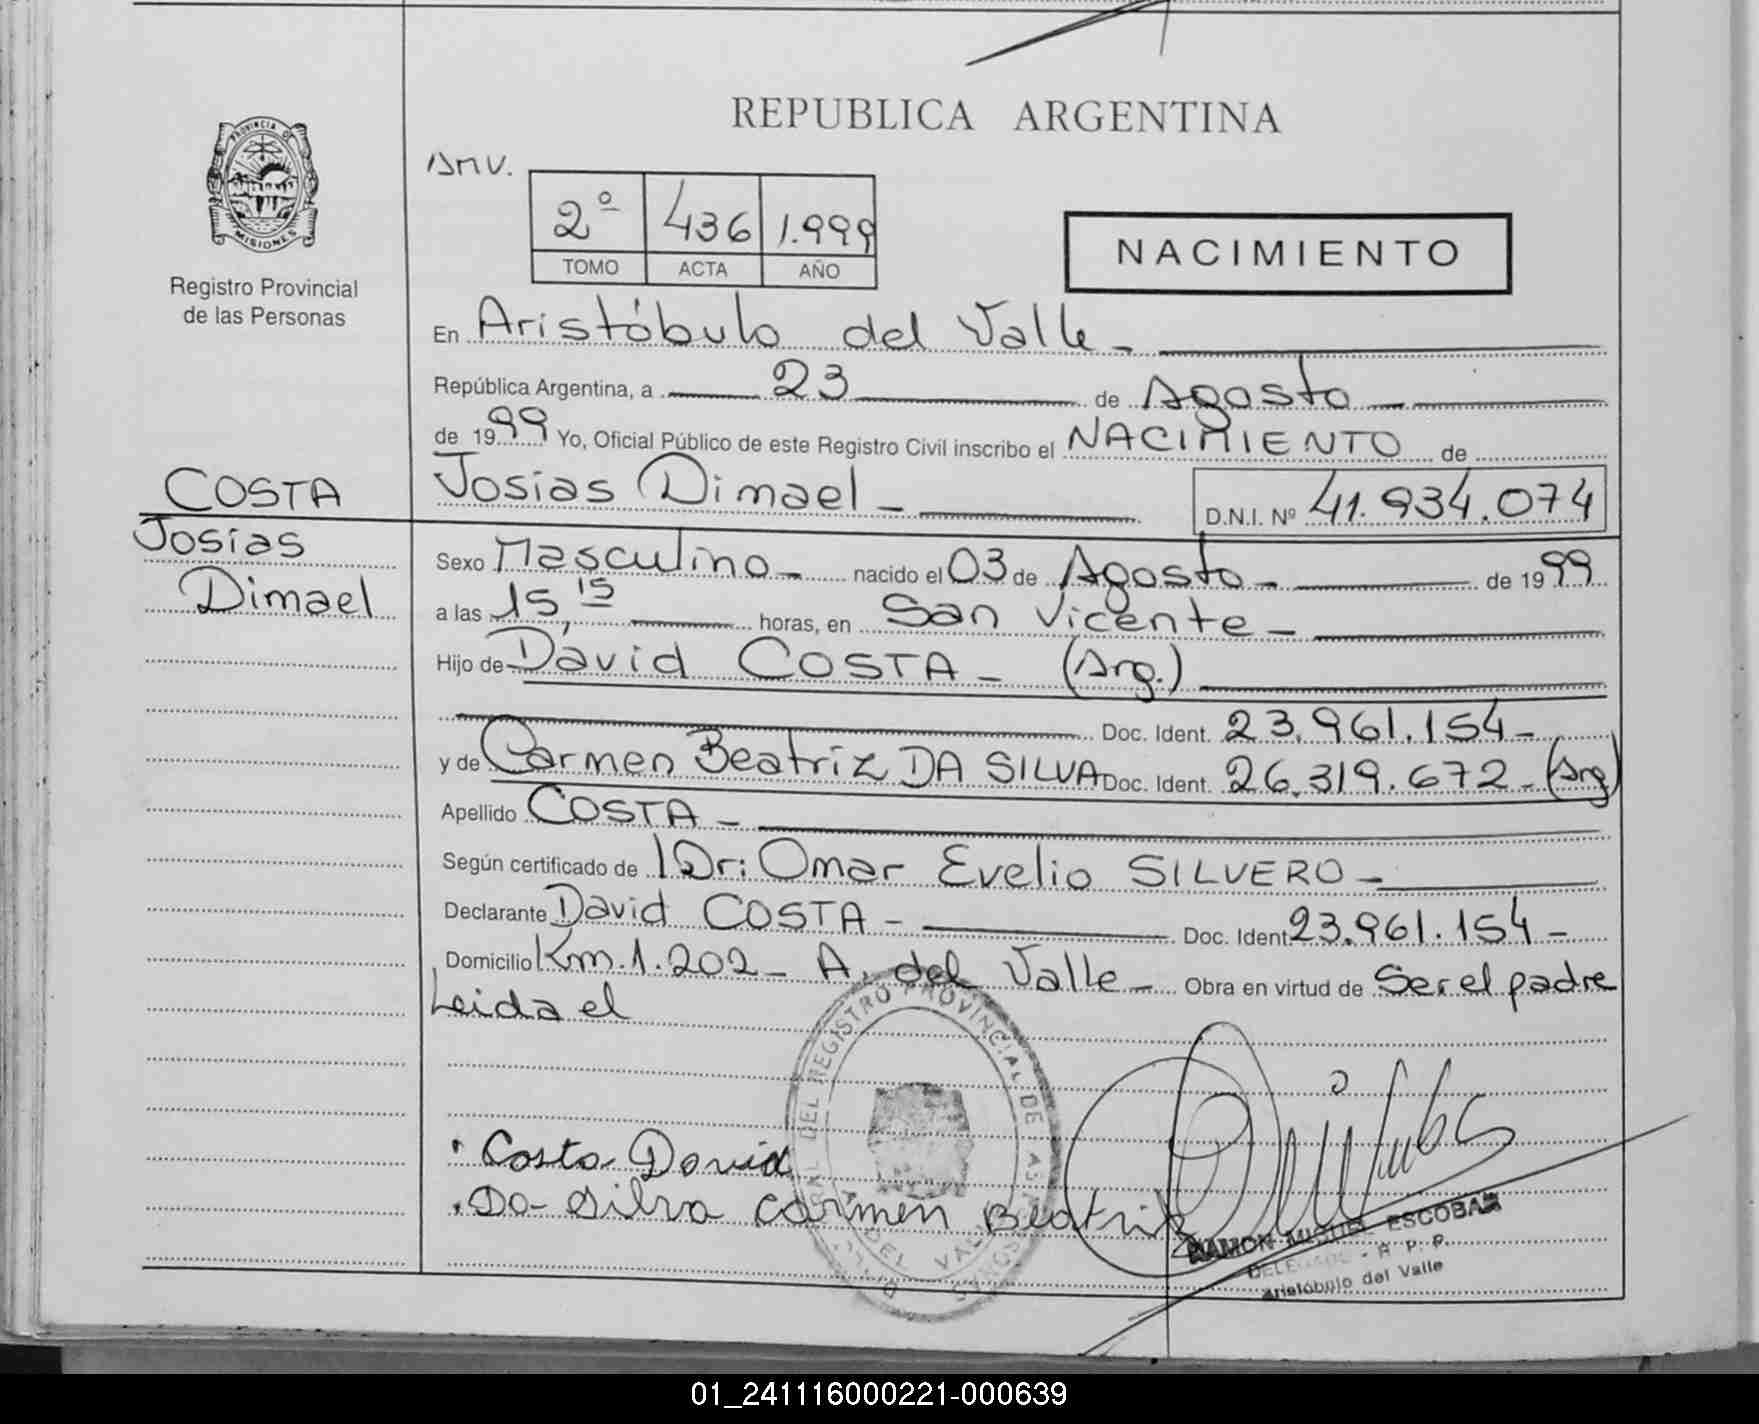 REPUBLICA ARGENTINA
PROVINCIA D MISIONES
Registro Provincial
de las Personas
2º 436 1.999
TOMO ACTA AÑO
NACIMIENTO
En Aristóbulo del Valle -
República Argentina, a 23 de Agosto
de 1999 Yo, Oficial Público de este Registro Civil inscribo el NACIMIENTO de
COSTA
Josías Dimael - D.N.I. Nº 41.934.074
Josías
Dimael
Sexo Masculino - nacido el 03 de Agosto - de 1999
a las 15,15 horas, en San Vicente -
Hijo de David COSTA - (Arg.)
Doc. Ident. 23.961.154 -
y de Carmen Beatriz DA SILVA Doc. Ident. 26.319.672 - (Arg)
Apellido COSTA -
Según certificado de Dr: Omar Evelio SILVERO -
Declarante David COSTA - Doc. Ident 23.961.154 -
Domicilio Km.1.202 - A. del Valle - Obra en virtud de Ser el padre
Leida el
DEL REGISTRO PROVINCIAL DE LAS
A. DEL VALLE
Costa David
Da Silva Carmen Beatriz
RAMON MIGUEL ESCOBAR
DELEGADO - R. P. P.
Aristóbulo del Valle
01_241116000221-000639